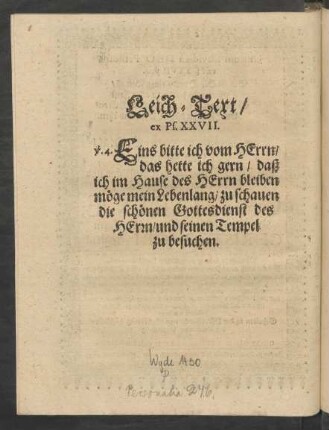 Leich-Text/
ex Ps. XXVII.
v. 4. Eins bitte ich vom HErrn/
das hette ich gern/ daß
ich im Hause des HErrn bleiben
möge mein Lebenlang/ zu schauen
die schönen Gottesdienst des
HErrn/ und seinen Tempel
zu besuchen.
Personalia